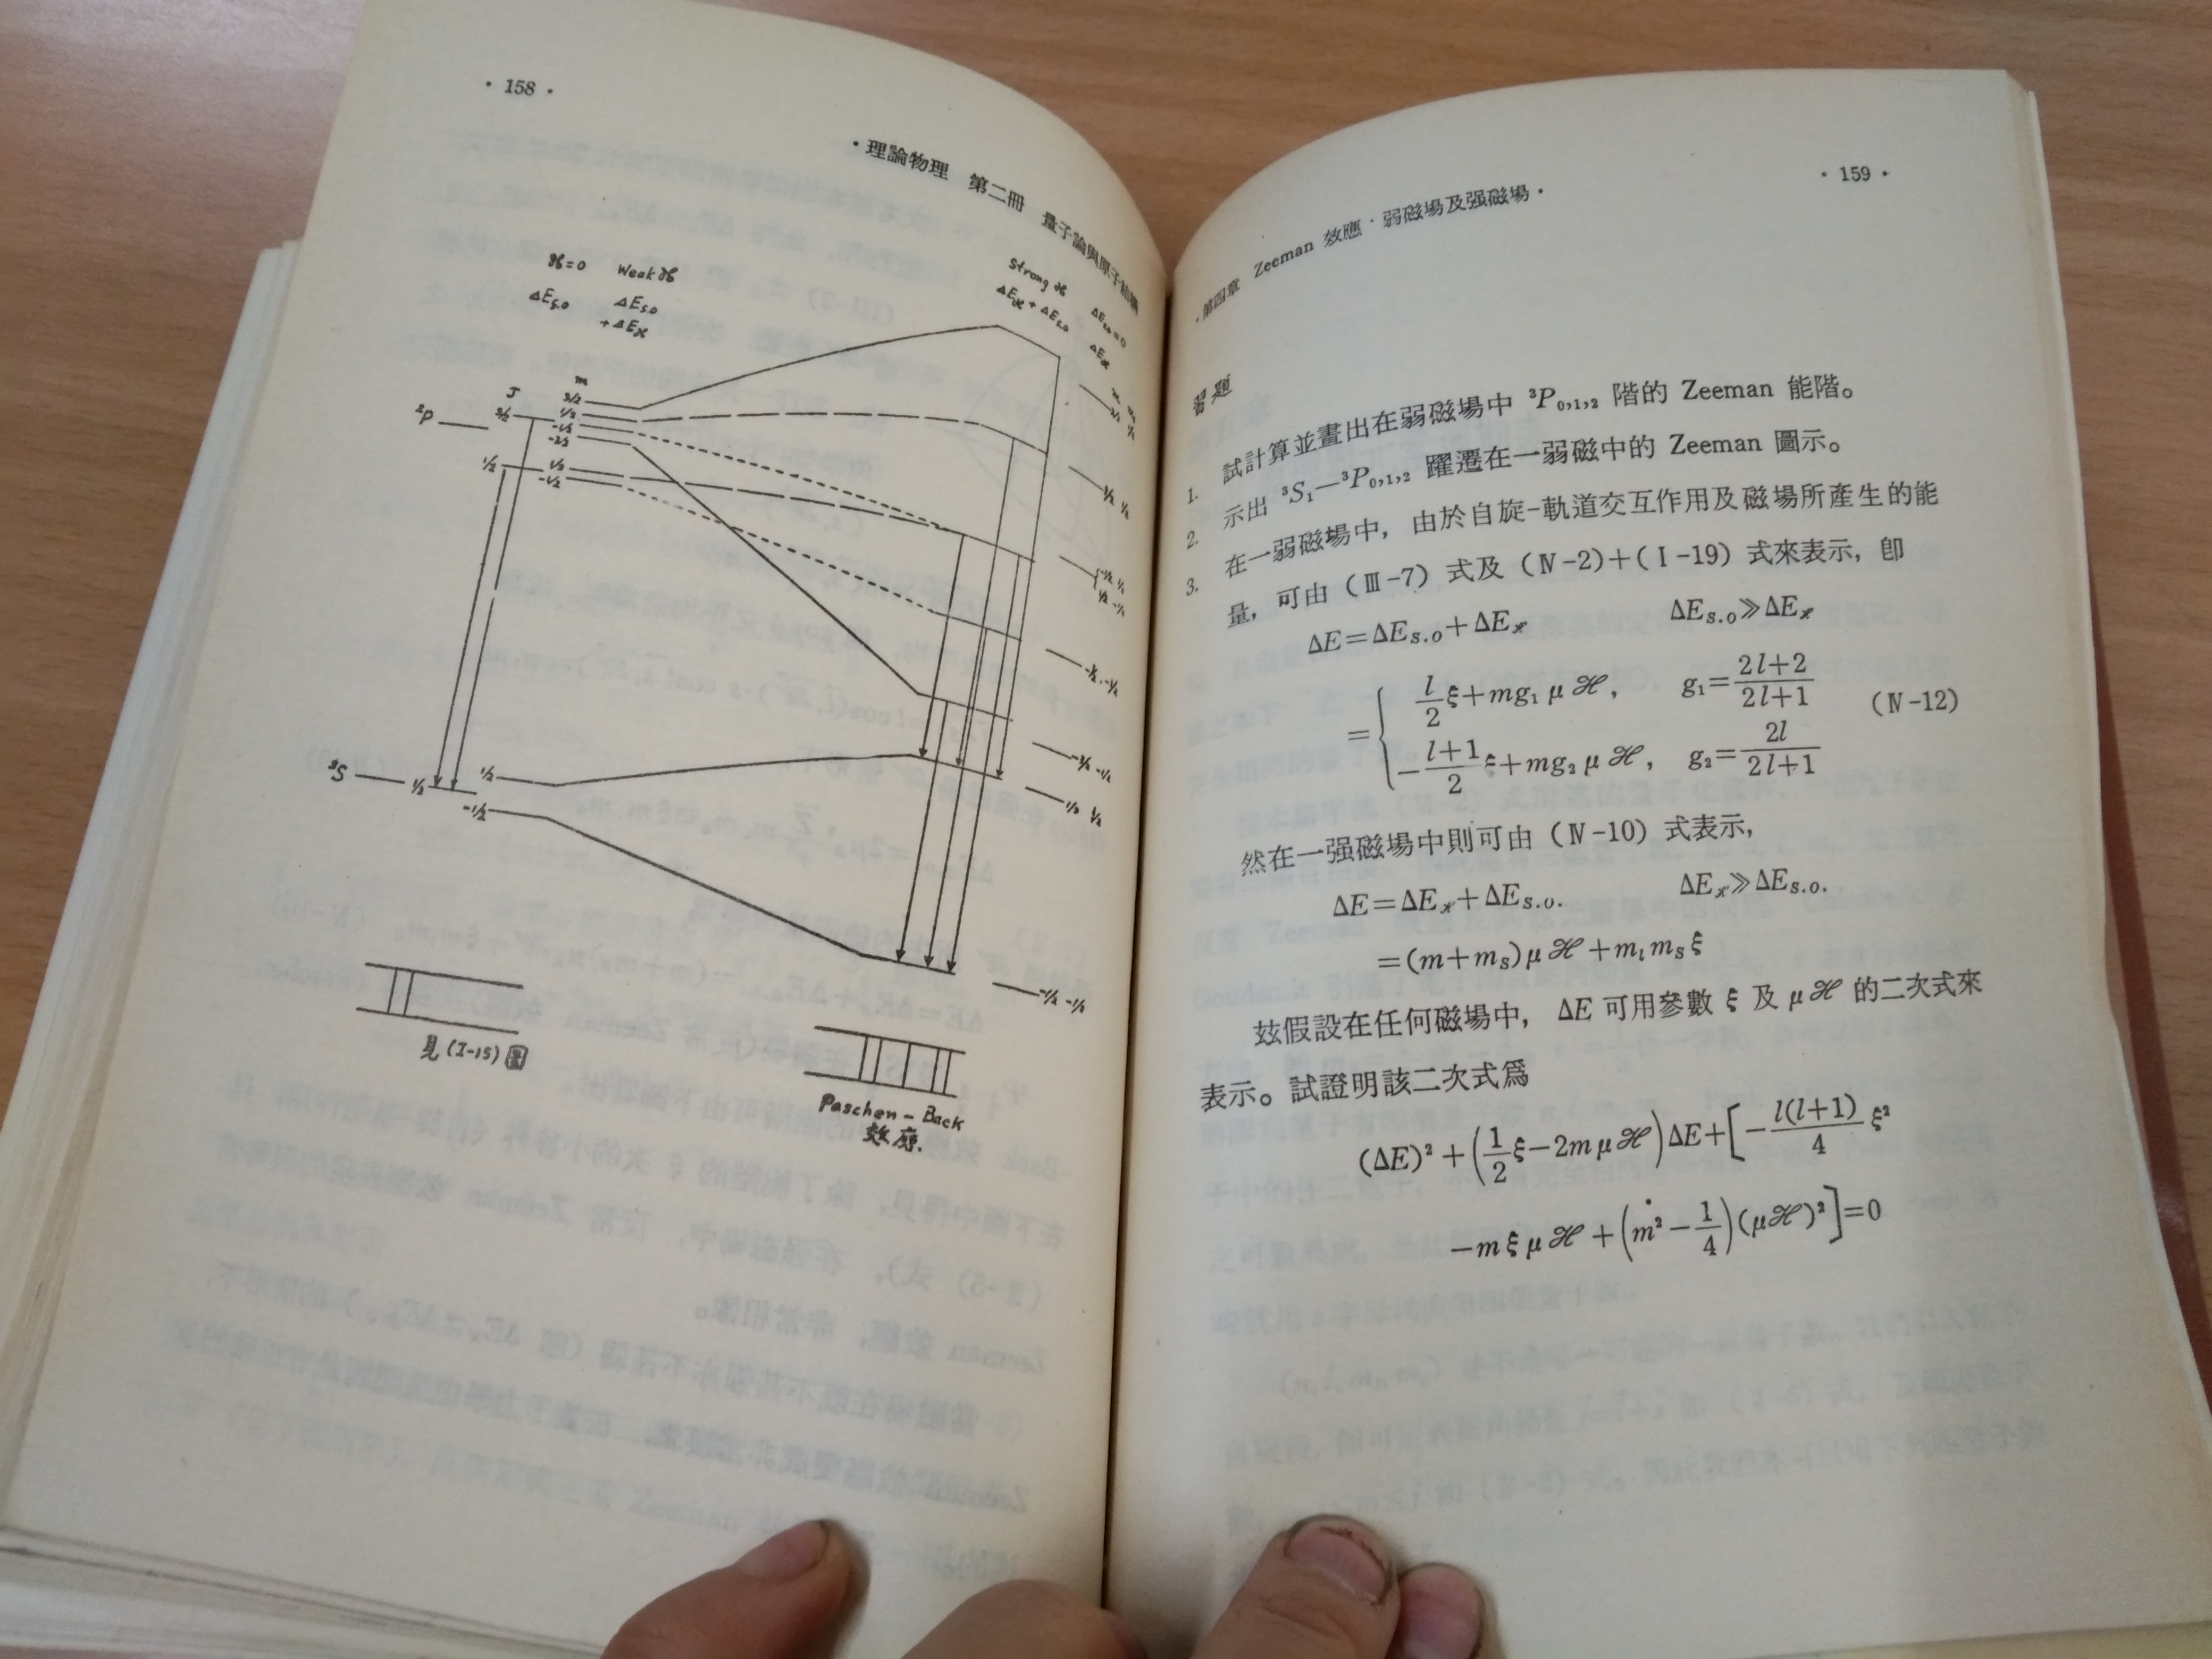 · 158 ·
· 理論物理 第二冊 量子論與原子結構
ℋ=0 Weak ℋ
ΔE_{S.O} ΔE_{S.O}
+ΔE_ℋ
Strong ℋ
ΔE_ℋ + ΔE_{S.O} ΔE_{S.O}=0
ΔE_ℋ
J m
²P 3/2 3/2
1/2
-1/2
-3/2
1/2 1/2
-1/2
1/2 1/2
-1/2 -1/2
²S 1/2 1/2
-1/2
1/2 1/2
-1/2 -1/2
見(I-15)圖
Paschen-Back
效應.
· 159 ·
· 第四章 Zeeman 效應·弱磁場及强磁場 ·
習題
1. 試計算並畫出在弱磁場中 ³P₀,₁,₂ 階的 Zeeman 能階。
2. 示出 ³S₁—³P₀,₁,₂ 躍遷在一弱磁中的 Zeeman 圖示。
3. 在一弱磁場中，由於自旋-軌道交互作用及磁場所產生的能
量，可由（Ⅲ-7）式及（Ⅳ-2）+（Ⅰ-19）式來表示，卽
ΔE=ΔE_{S.O}+ΔE_ℋ ΔE_{S.O}≫ΔE_ℋ
= { l/2 ξ+mg₁ μ ℋ, g₁=(2l+2)/(2l+1)
-(l+1)/2 ξ+mg₂ μ ℋ, g₂=2l/(2l+1) (Ⅳ-12)
然在一强磁場中則可由（Ⅳ-10）式表示，
ΔE=ΔE_ℋ+ΔE_{S.O.} ΔE_ℋ≫ΔE_{S.O.}
=(m+m_S) μ ℋ+m_l m_S ξ
玆假設在任何磁場中，ΔE 可用參數 ξ 及 μ ℋ 的二次式來
表示。試證明該二次式爲
(ΔE)²+(1/2 ξ-2m μ ℋ)ΔE+[-l(l+1)/4 ξ²
-m ξ μ ℋ+(m²-1/4)(μℋ)²]=0